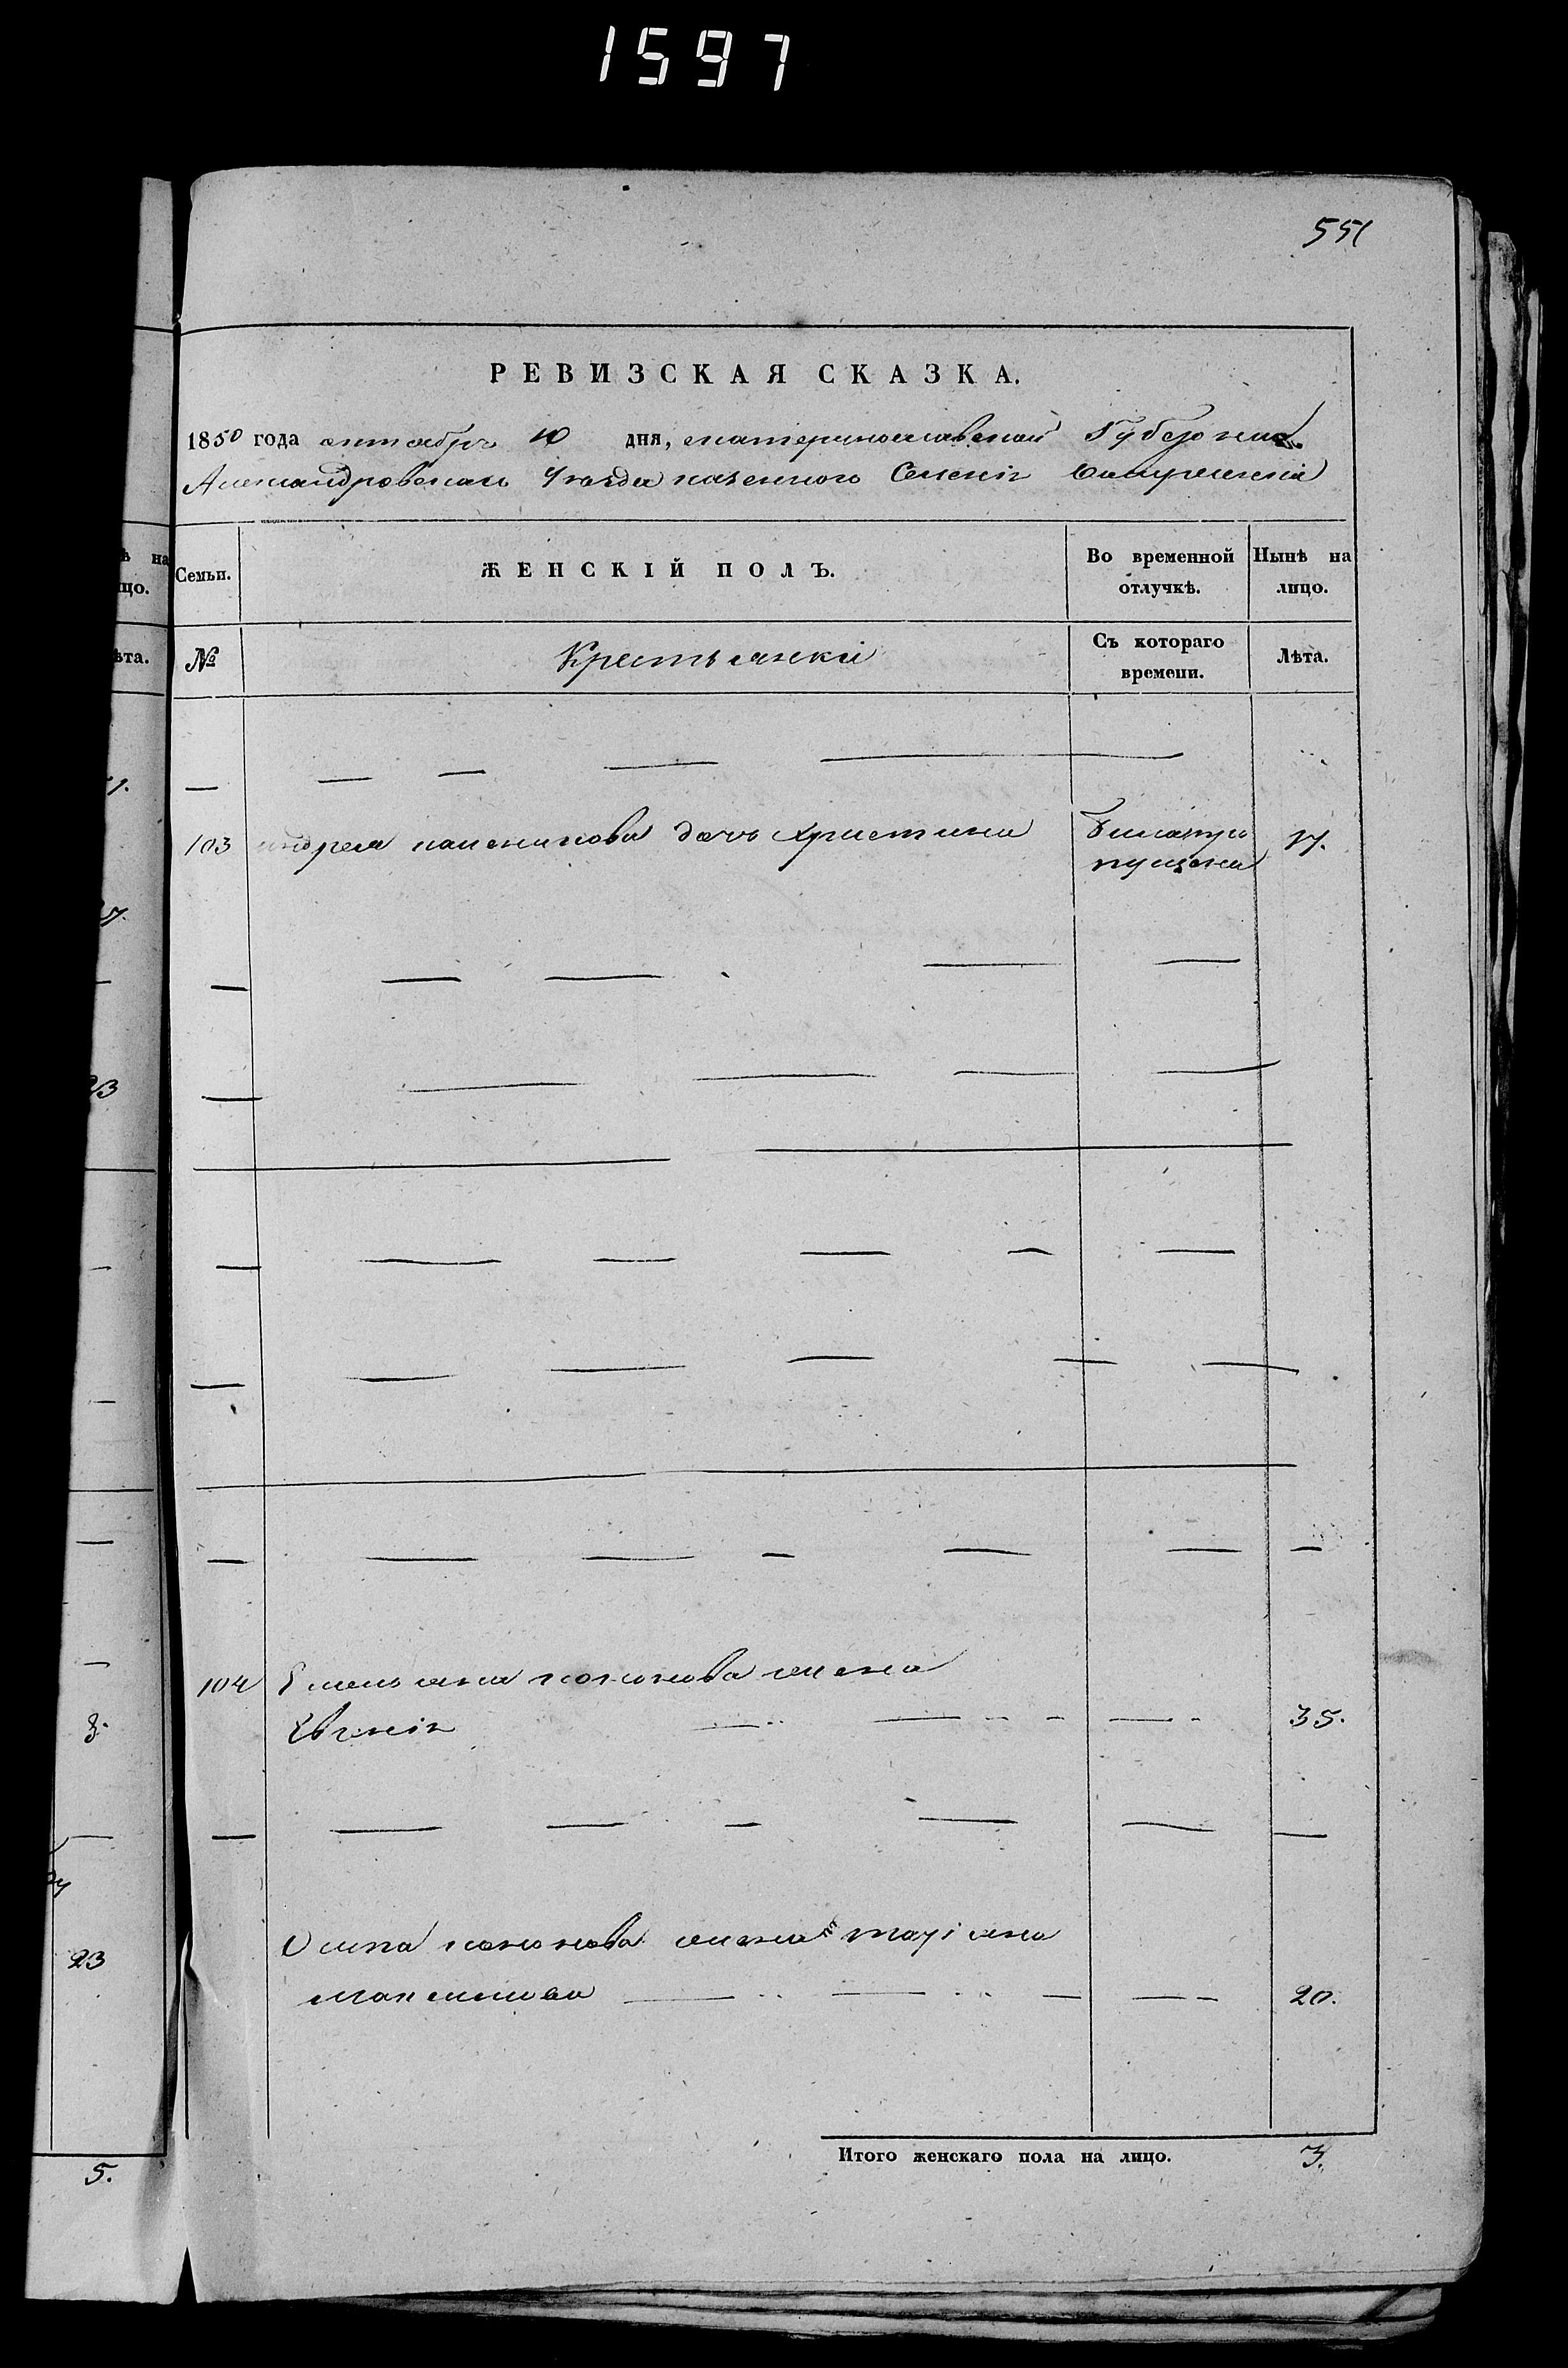 1597
551
РЕВИЗСКАЯ СКАЗКА.
1850 года октября 10 дня, екатеринославской Губернии
Александровскаго Уѣзда казенного Селенія
ѣ на
цо.
Семьи.
ЖЕНСКІЙ ПОЛЪ.
Во временной
отлучкѣ.
Нынѣ на
лицо.
ѣта.
№
Крестьянки
Съ котораго
времени.
Лѣта.
103 андрея дочь христина 17.
пущена
23
104 Емельяна кононова жена
Евгенія 35.
3.
Осипа кононова жена маріана
23
максимова 20.
Итого женскаго пола на лицо. 3.
5.